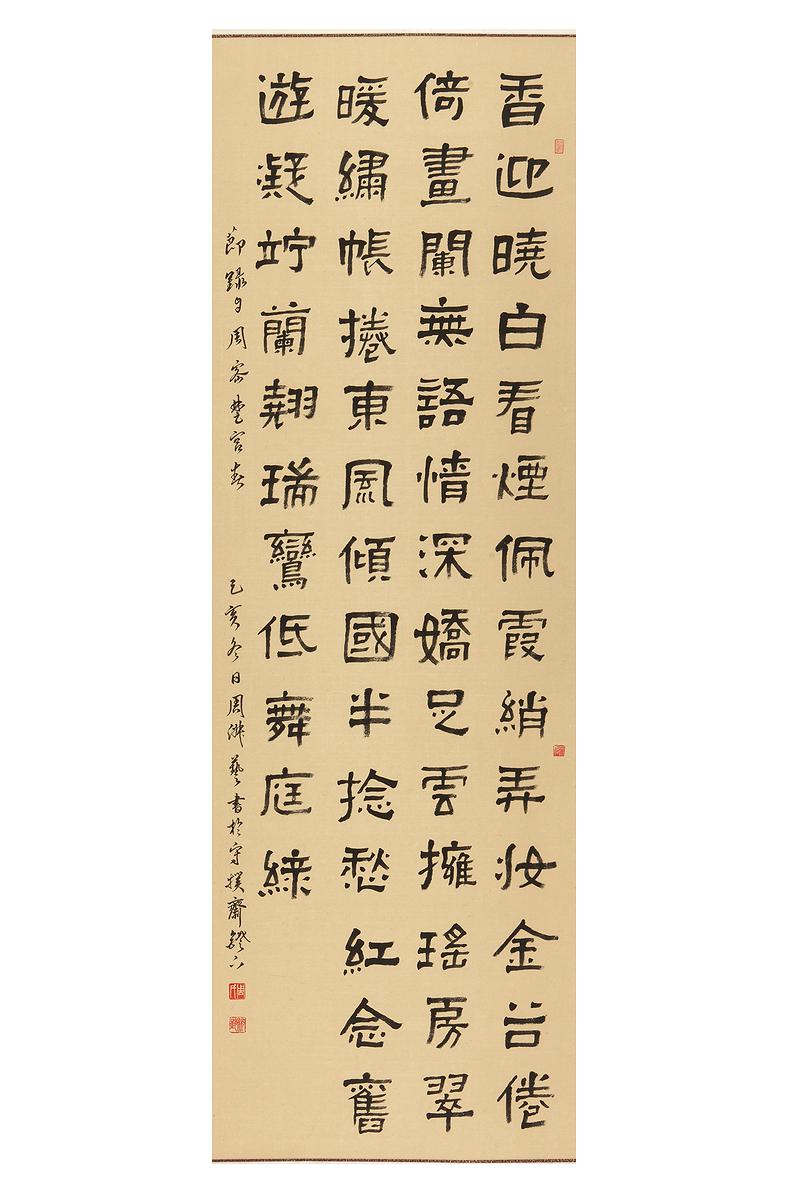 香迎曉白看煙佩霞綃弄妝金谷倦
倚畫闌無語情深嬌足雲擁瑤房翠
暖繡帳捲東風傾國半捻愁紅念舊
遊凝竚蘭翹瑞鸞低舞庭綠
節錄周密楚宮春 己亥冬日周藝書於守樸齋鐙下